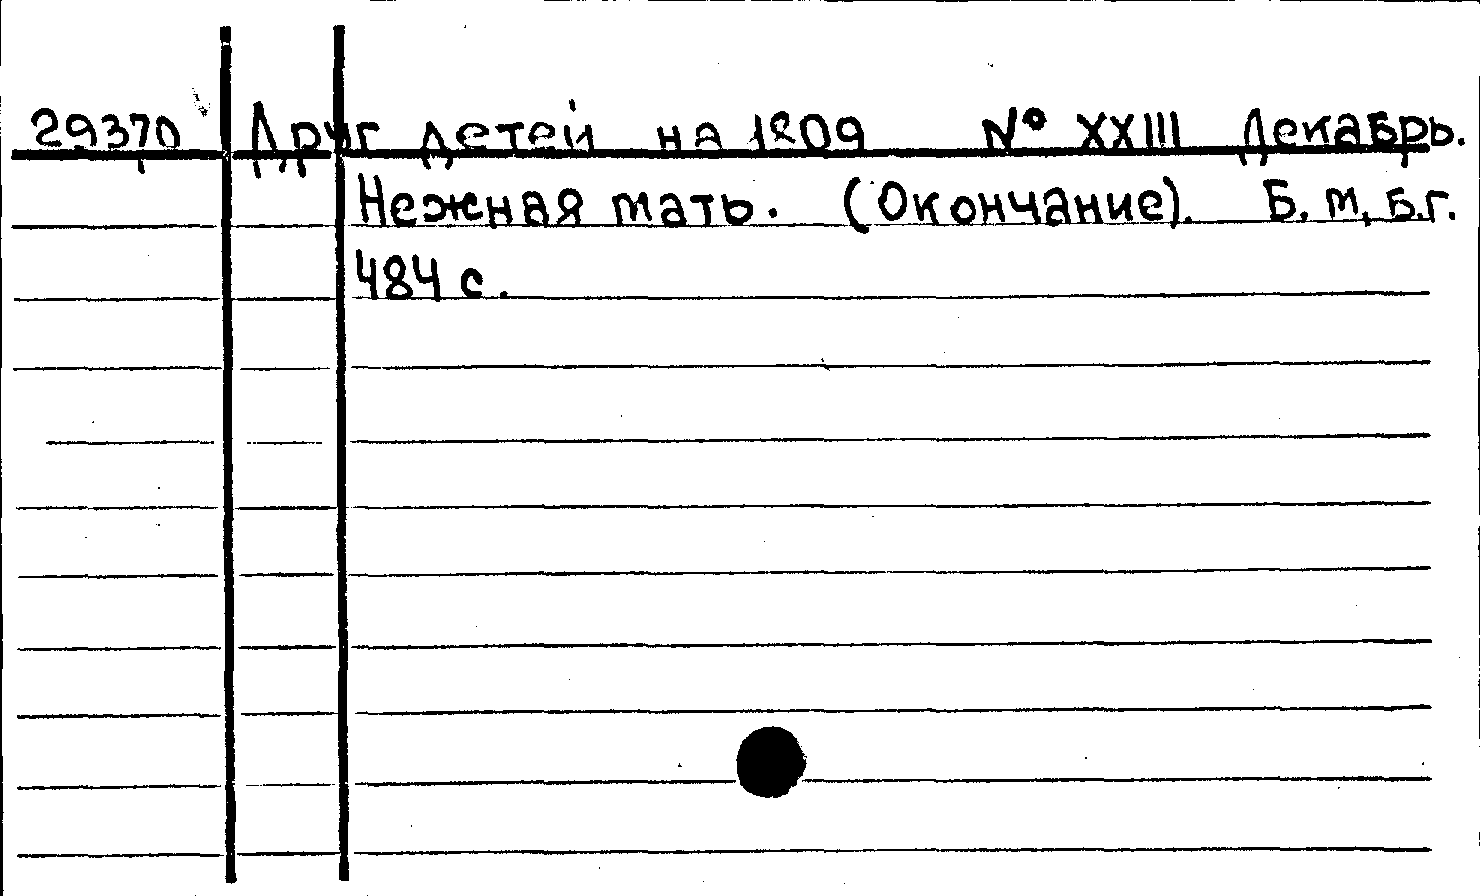 29370 Друг детей на 1809 № XXIII Декабрь.
Нежная мать. (Окончание). Б. м, Б.г.
484 с.